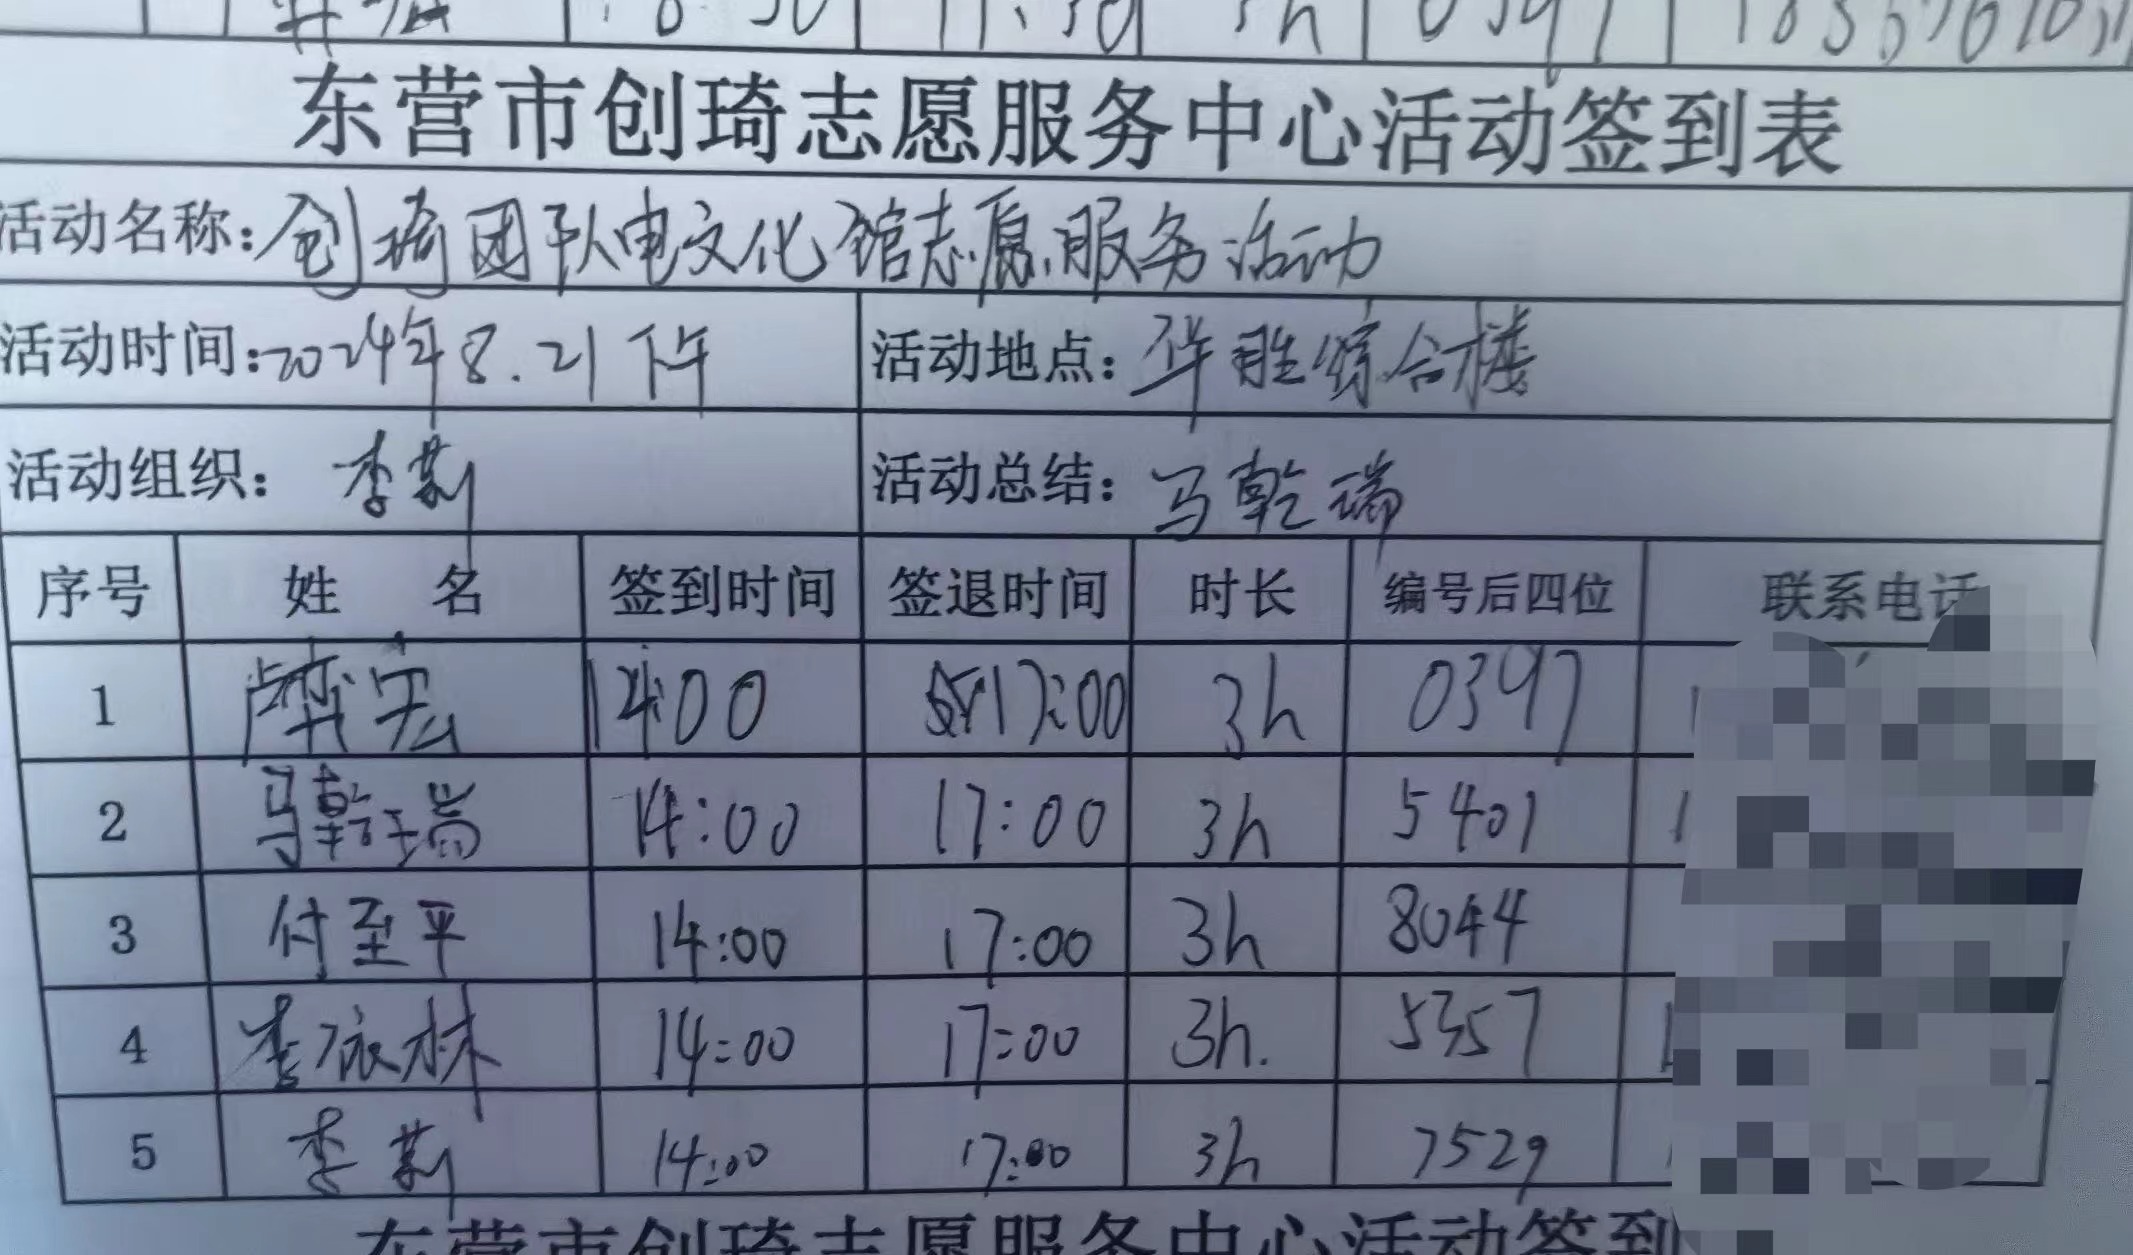 8:30 11:30 3h 0397
东营市创琦志愿服务中心活动签到表
活动名称:创琦团队电文化馆志愿服务活动
活动时间:2024年8.21下午 活动地点:华胜综合楼
活动组织: 李莉 活动总结: 马乾瑞
序号 姓 名 签到时间 签退时间 时长 编号后四位 联系电话
1 宏 14:00 17:00 3h 0397
2 马乾瑞 14:00 17:00 3h 5401
3 付至平 14:00 17:00 3h 8044
4 李依林 14:00 17:00 3h. 5357
5 李莉 14:00 17:00 3h 7529
东营市创琦志愿服务中心活动签到